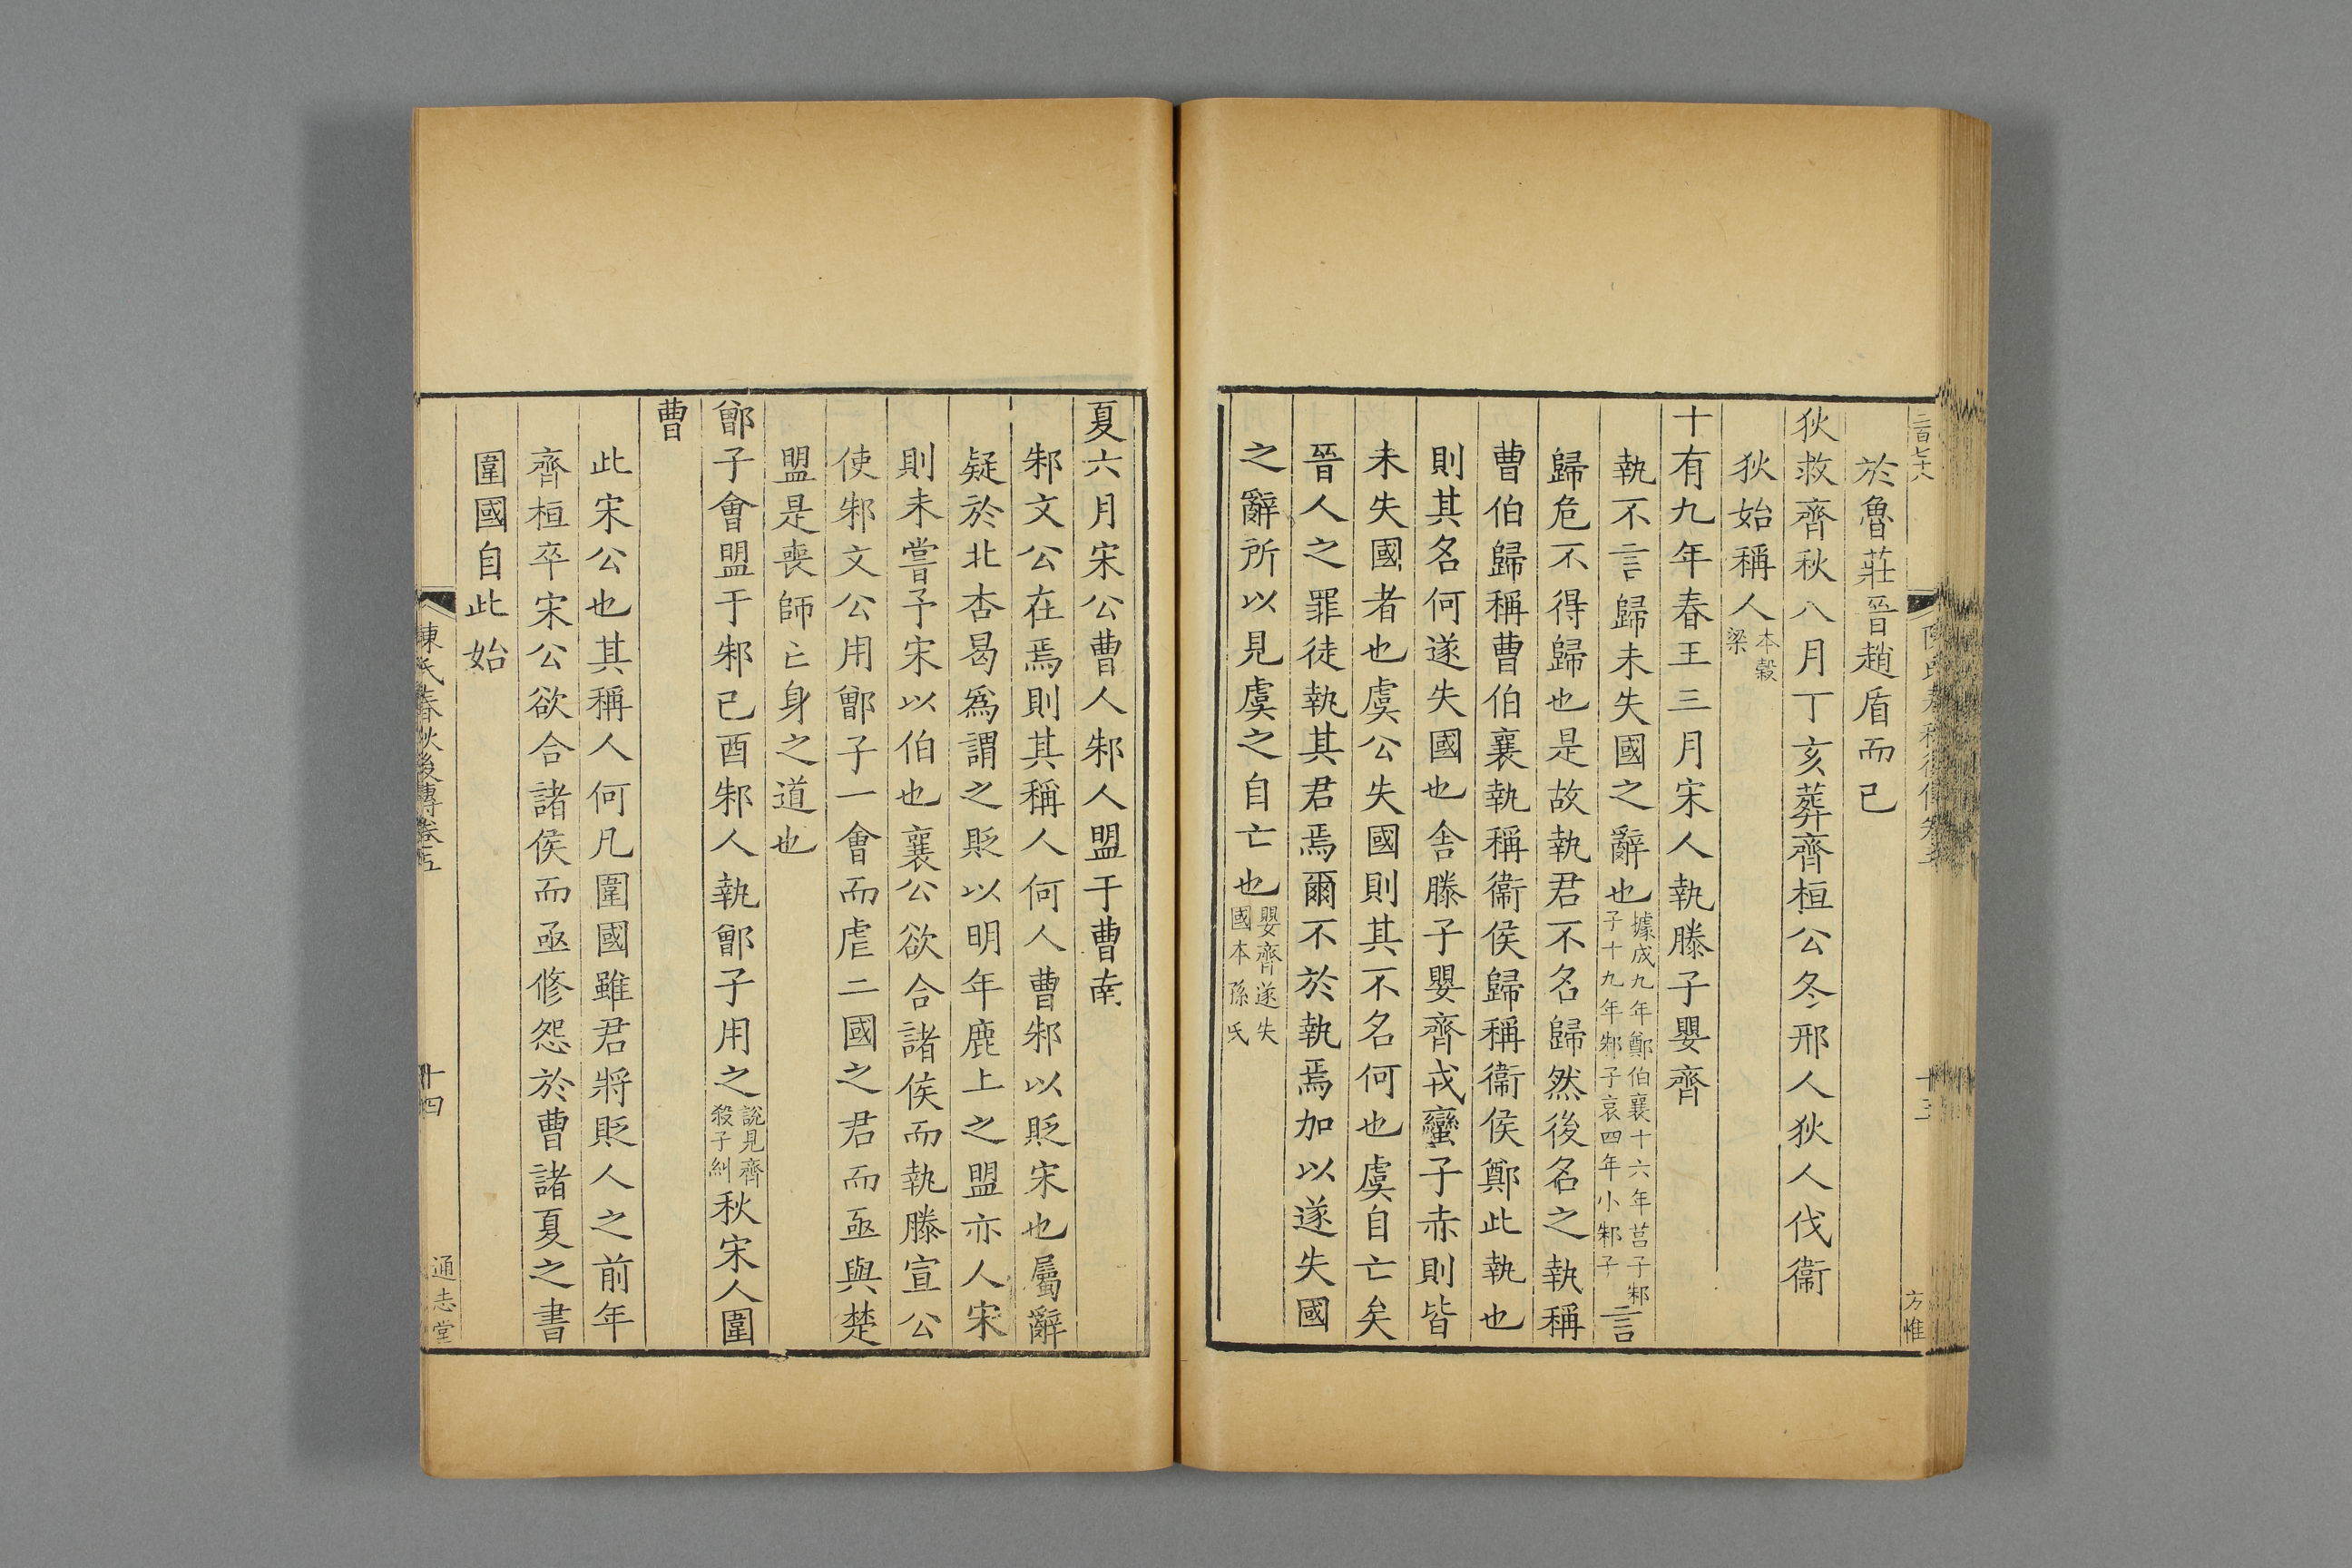 二百七十八
十三
方惟
於魯莊晉趙盾而已
狄救齊秋八月丁亥葬齊桓公冬邢人狄人伐衞
狄始稱人本榖梁
十有九年春王三月宋人執滕子嬰齊
執不言歸未失國之辭也據成九年鄭伯襄十六年莒子邾子十九年邾子哀四年小邾子言
歸危不得歸也是故執君不名歸然後名之執稱
曹伯歸稱曹伯襄執稱衞侯歸稱衞侯鄭此執也
則其名何遂失國也舍滕子嬰齊戎蠻子赤則皆
未失國者也虞公失國則其不名何也虞自亡矣
晉人之罪徒執其君焉爾不於執焉加以遂失國
之辭所以見虞之自亡也嬰齊遂失國本孫氏
夏六月宋公曹人邾人盟于曹南
邾文公在焉則其稱人何人曹邾以貶宋也屬辭
疑於北杏曷爲謂之貶以明年鹿上之盟亦人宋
則未嘗予宋以伯也襄公欲合諸侯而執滕宣公
使邾文公用鄫子一會而虐二國之君而亟與楚
盟是喪師亡身之道也
鄫子會盟于邾已酉邾人執鄫子用之說見齊殺子糾秋宋人圍
曹
此宋公也其稱人何凡圍國雖君將貶人之前年
齊桓卒宋公欲合諸侯而亟修怨於曹諸夏之書
圍國自此始
陳氏春秋後傳卷五
十四
通志堂